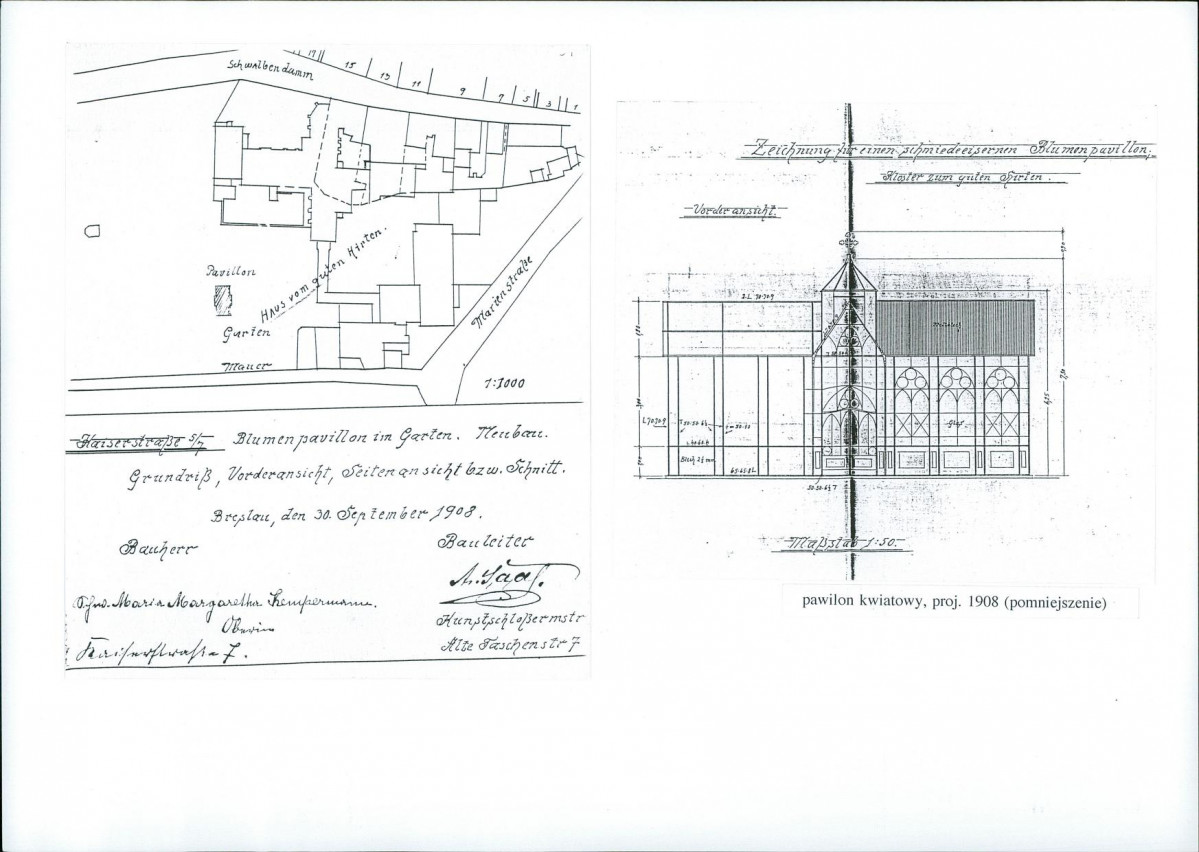 Schwalbendamm
17
15
13
11
9
7
5
3
1
Pavillon
Haus vom guten Hirten.
Garten
Marienstraße
Mauer
1:1000
Kaiserstraße 5/7 Blumenpavillon im Garten. Neubau.
Grundriß, Vorderansicht, Seitenansicht bzw. Schnitt.
Breslau, den 30. September 1908.
Bauherr
Bauleiter
Maria Margaretha Kempermann.
Oberin
Kaiserstraße 7.
Kunstschloßermstr
Alte Taschenstr 7
Zeichnung für einen schmiedeeisernen Blumenpavillon.
Kloster zum guten Hirten.
Vorderansicht.
Glas
Maßstab 1:50.
pawilon kwiatowy, proj. 1908 (pomniejszenie)